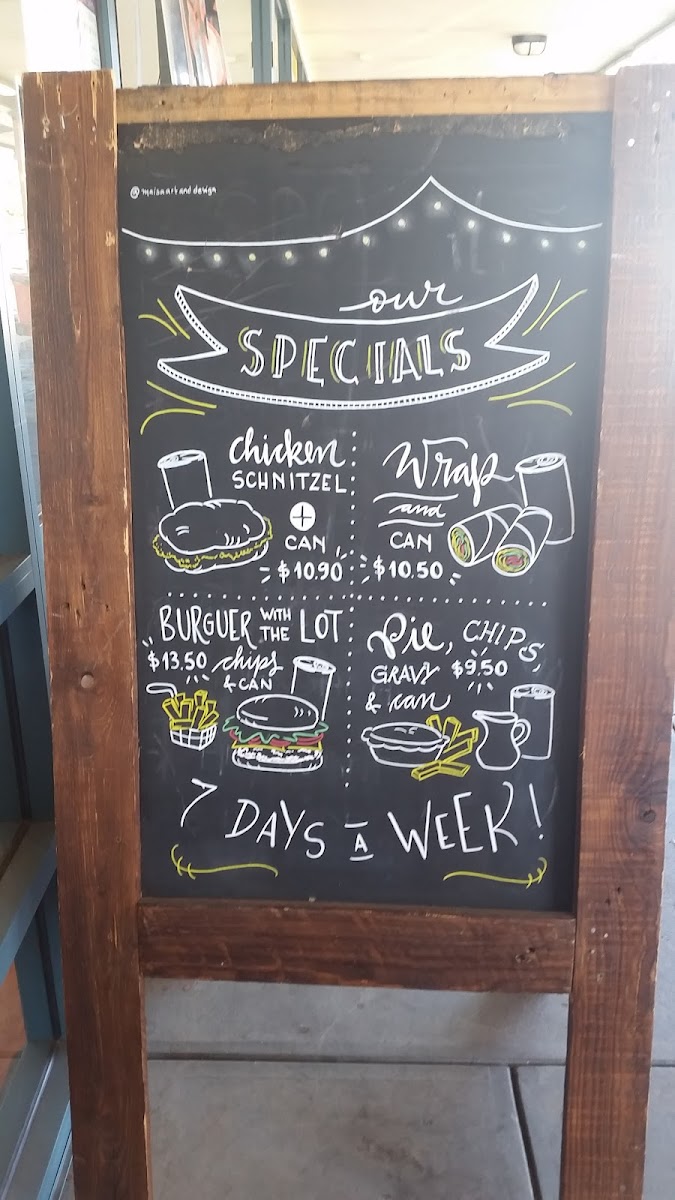 @maisaartanddesign
our
SPECIALS
chicken
SCHNITZEL
+
CAN
$10.90
Wrap
and
CAN
$10.50
BURGUER WITH THE LOT
$13.50 chips
& CAN
Pie, CHIPS,
GRAVY $9.50
& can
7 DAYS A WEEK!